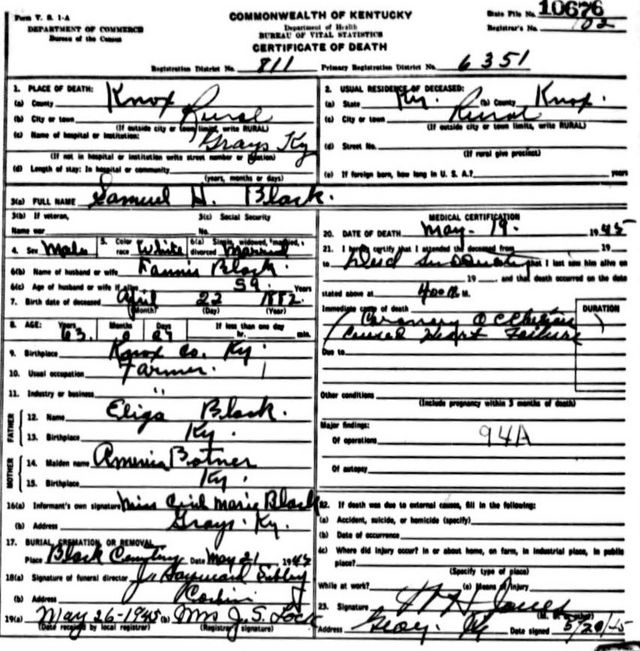 Form V. S. 1-A
DEPARTMENT OF COMMERCE
Bureau of the Census
COMMONWEALTH OF KENTUCKY
Department of Health
BUREAU OF VITAL STATISTICS
CERTIFICATE OF DEATH
State File No. 10676
Registrar's No. 102
Registration District No. 811 Primary Registration District No. 6351
1. PLACE OF DEATH:
(a) County Knox
(b) City or town Rural
(If outside city or town limits, write RURAL)
(c) Name of hospital or institution: Grays Ky
(If not in hospital or institution write street number or location)
(d) Length of stay: In hospital or community
(years, months or days)
2. USUAL RESIDENCE OF DECEASED:
(a) State Ky. (b) County Knox.
(c) City or town Rural
(If outside city or town limits, write RURAL)
(d) Street No.
(If rural give precinct)
(e) If foreign born, how long in U. S. A.? years
3(a) FULL NAME Samuel H. Black.
3(b) If veteran, 3(c) Social Security
Name war No.
4. Sex Male 5. Color race White 6(a) Single, widowed, married, divorced Married
6(b) Name of husband or wife Fannie Black.
6(c) Age of husband or wife if alive 59. Years
7. Birth date of deceased April 22 1882
(Month) (Day) (Year)
8. AGE: Years Months Days If less than one day
63. 0 27 hr. min.
9. Birthplace Knox Co. Ky.
10. Usual occupation Farmer.
11. Industry or business "
FATHER
12. Name Eliga Black.
13. Birthplace Ky.
MOTHER
14. Maiden name Botner
15. Birthplace Ky.
16(a) Informant's own signature Miss Marie Black
(b) Address Grays. Ky.
17. BURIAL, CREMATION, OR REMOVAL
Place Black Cemetery Date May 21 1945
18(a) Signature of funeral director J. Hayward Sibley
(b) Address Corbin
19(a) May 26-1945 (b) Mrs J. S. Lock
(Date received by local registrar) (Registrar's signature)
MEDICAL CERTIFICATION
20. DATE OF DEATH May. 19. 1945
21. I hereby certify that I attended the deceased from 19
to Died Suddenly that I last saw him alive on
19 and that death occurred on the date
stated above at 400 M.
Immediate cause of death DURATION
Coronary Occlusion
Heart Failure
Due to
Other conditions
(Include pregnancy within 3 months of death)
Major findings:
Of operations 94A
Of autopsy
22. If death was due to external causes, fill in the following:
(a) Accident, suicide, or homicide (specify)
(b) Date of occurrence
(c) Where did injury occur? In or about home, on farm, in industrial place, in public
place?
(Specify type of place)
While at work? (e) Means of injury
23. Signature Jones
Address Grays. Ky Date signed 5/20/45